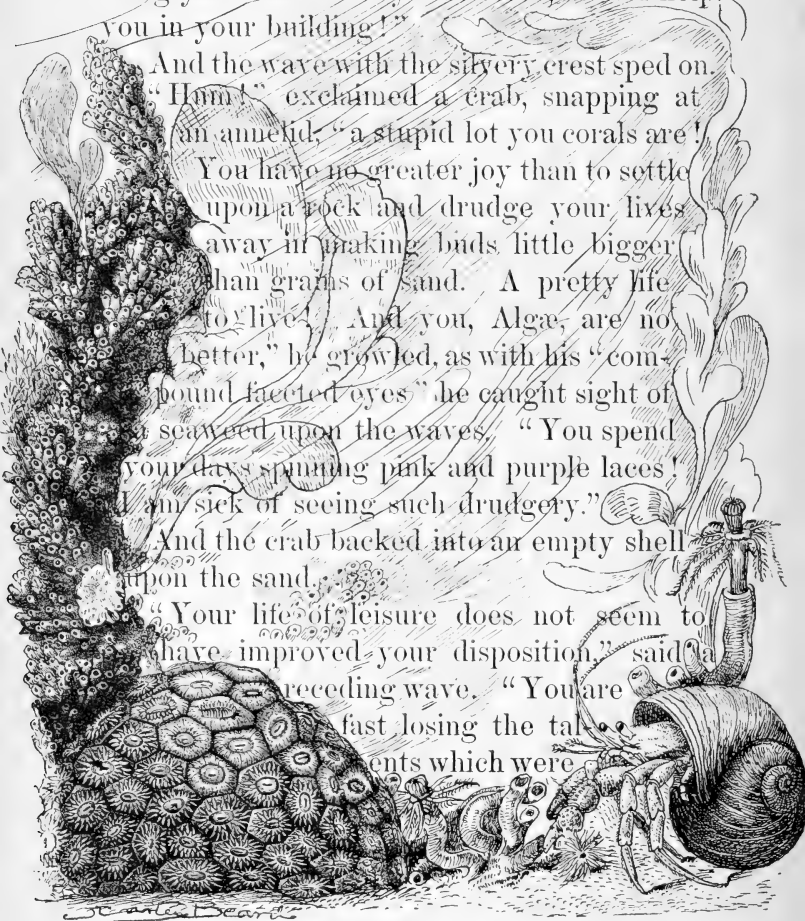 you in your building!"
And the wave with the silvery crest sped on.
"Hum!" exclaimed a crab, snapping at
an annelid; "a stupid lot you corals are!
You have no greater joy than to settle
upon a rock and drudge your lives
away in making buds little bigger
than grains of sand. A pretty life
to live! And you, Algæ, are no
better," he growled, as with his "com-
pound faceted eyes" he caught sight of
a seaweed upon the waves. "You spend
your days spinning pink and purple laces!
I am sick of seeing such drudgery."
And the crab backed into an empty shell
upon the sand.
"Your life of leisure does not seem to
have improved your disposition," said a
receding wave. "You are
fast losing the tal-
ents which were
Beard